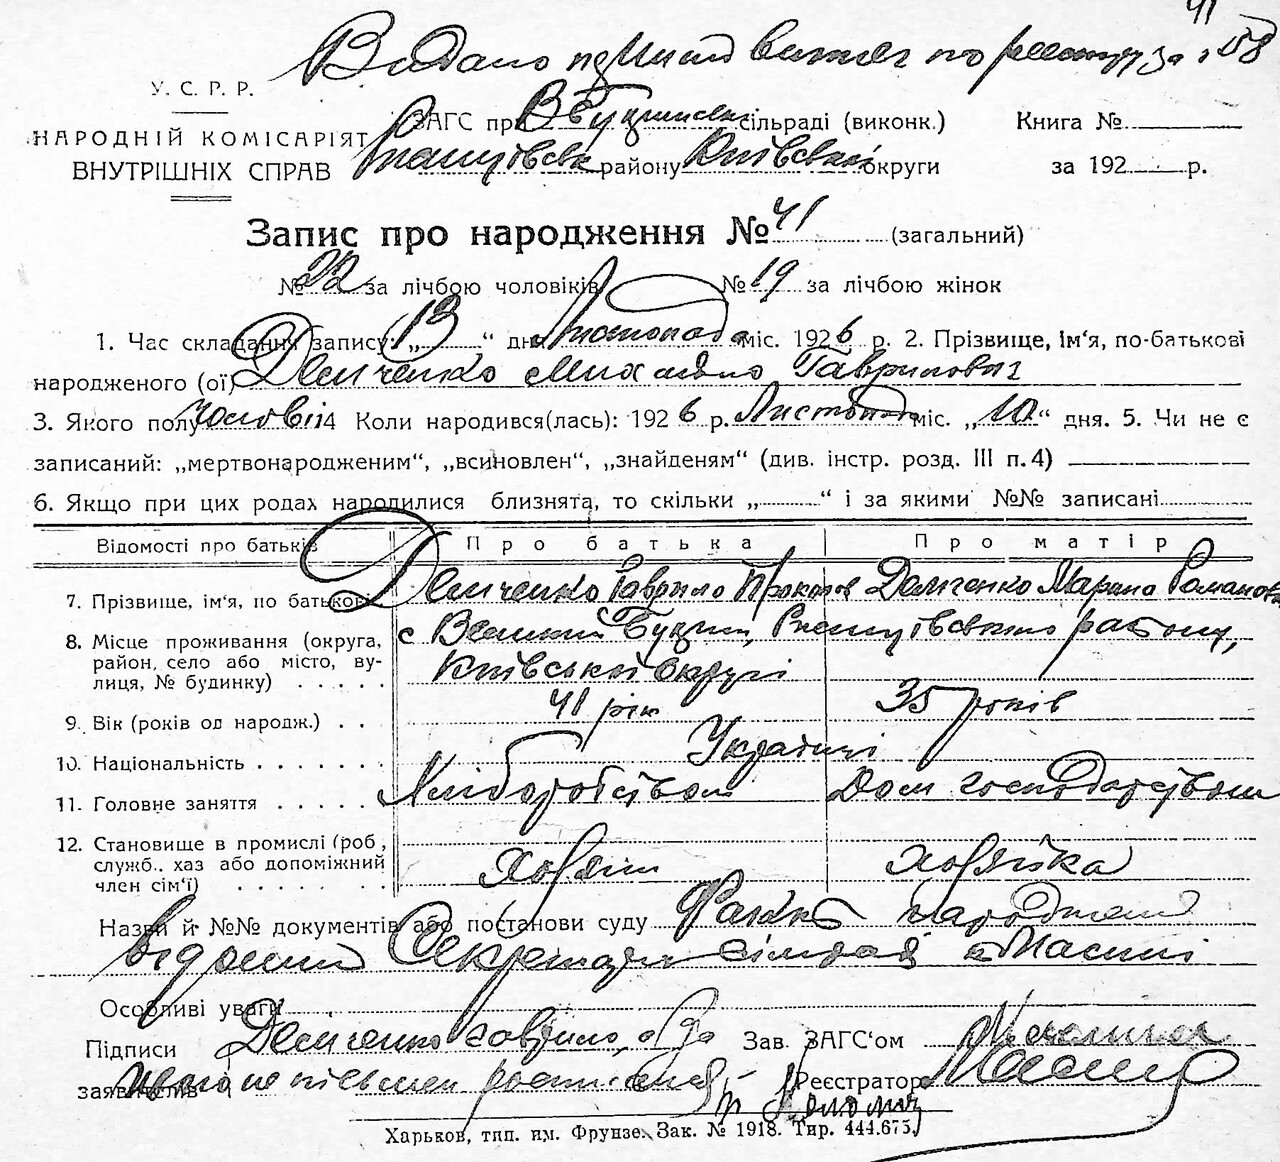 41
Видано витяг по реєстру за 58
У. С. Р. Р.
НАРОДНІЙ КОМІСАРІЯТ
ВНУТРІШНІХ СПРАВ
ЗАГС при В Бугаївськ сільраді (виконк.) Книга №
району Київської округи за 192 р.
Запис про народження № 41 (загальний)
№ 22 за лічбою чоловіків № 19 за лічбою жінок
1. Час складання запису: „13“ дня Листопада міс. 1926 р. 2. Прізвище, ім'я, по-батькові
народженого (ої) Демченко Михайло Гаврилович
3. Якого полу чоловічі 4 Коли народився(лась): 1926 р. Листопад міс. „10“ дня. 5. Чи не є
записаний: „мертвонародженим“, „всиновлен“, „знайденям“ (див. інстр. розд. III п. 4)
6. Якщо при цих родах народилися близнята, то скільки „ “ і за якими №№ записані
Відомості про батьків Про батька Про матір
7. Прізвище, ім'я, по батькові Демченко Гаврило Прокопов Демченко Марина Романовн
8. Місце проживання (округа, с Великий району,
район, село або місто, ву- Київської округи
лиця, № будинку)
9. Вік (років од народж.) 41 рік 35 років
10. Національність Українці
11. Головне заняття Хліборобством Дом господарством
12. Становище в промислі (роб., служб., хаз або допоміжний член сім'ї) Хозяїн Хозяйка
Назви й №№ документів або постанови суду Факт народження
відомий Секретарю сільради
Особливі уваги
Підписи Демченко Гаврило, а за Зав. ЗАГС'ом
заявителів його неписьмен розписався Реєстратор
Харьков, тип. им. Фрунзе. Зак. № 1918. Тир. 444.675.